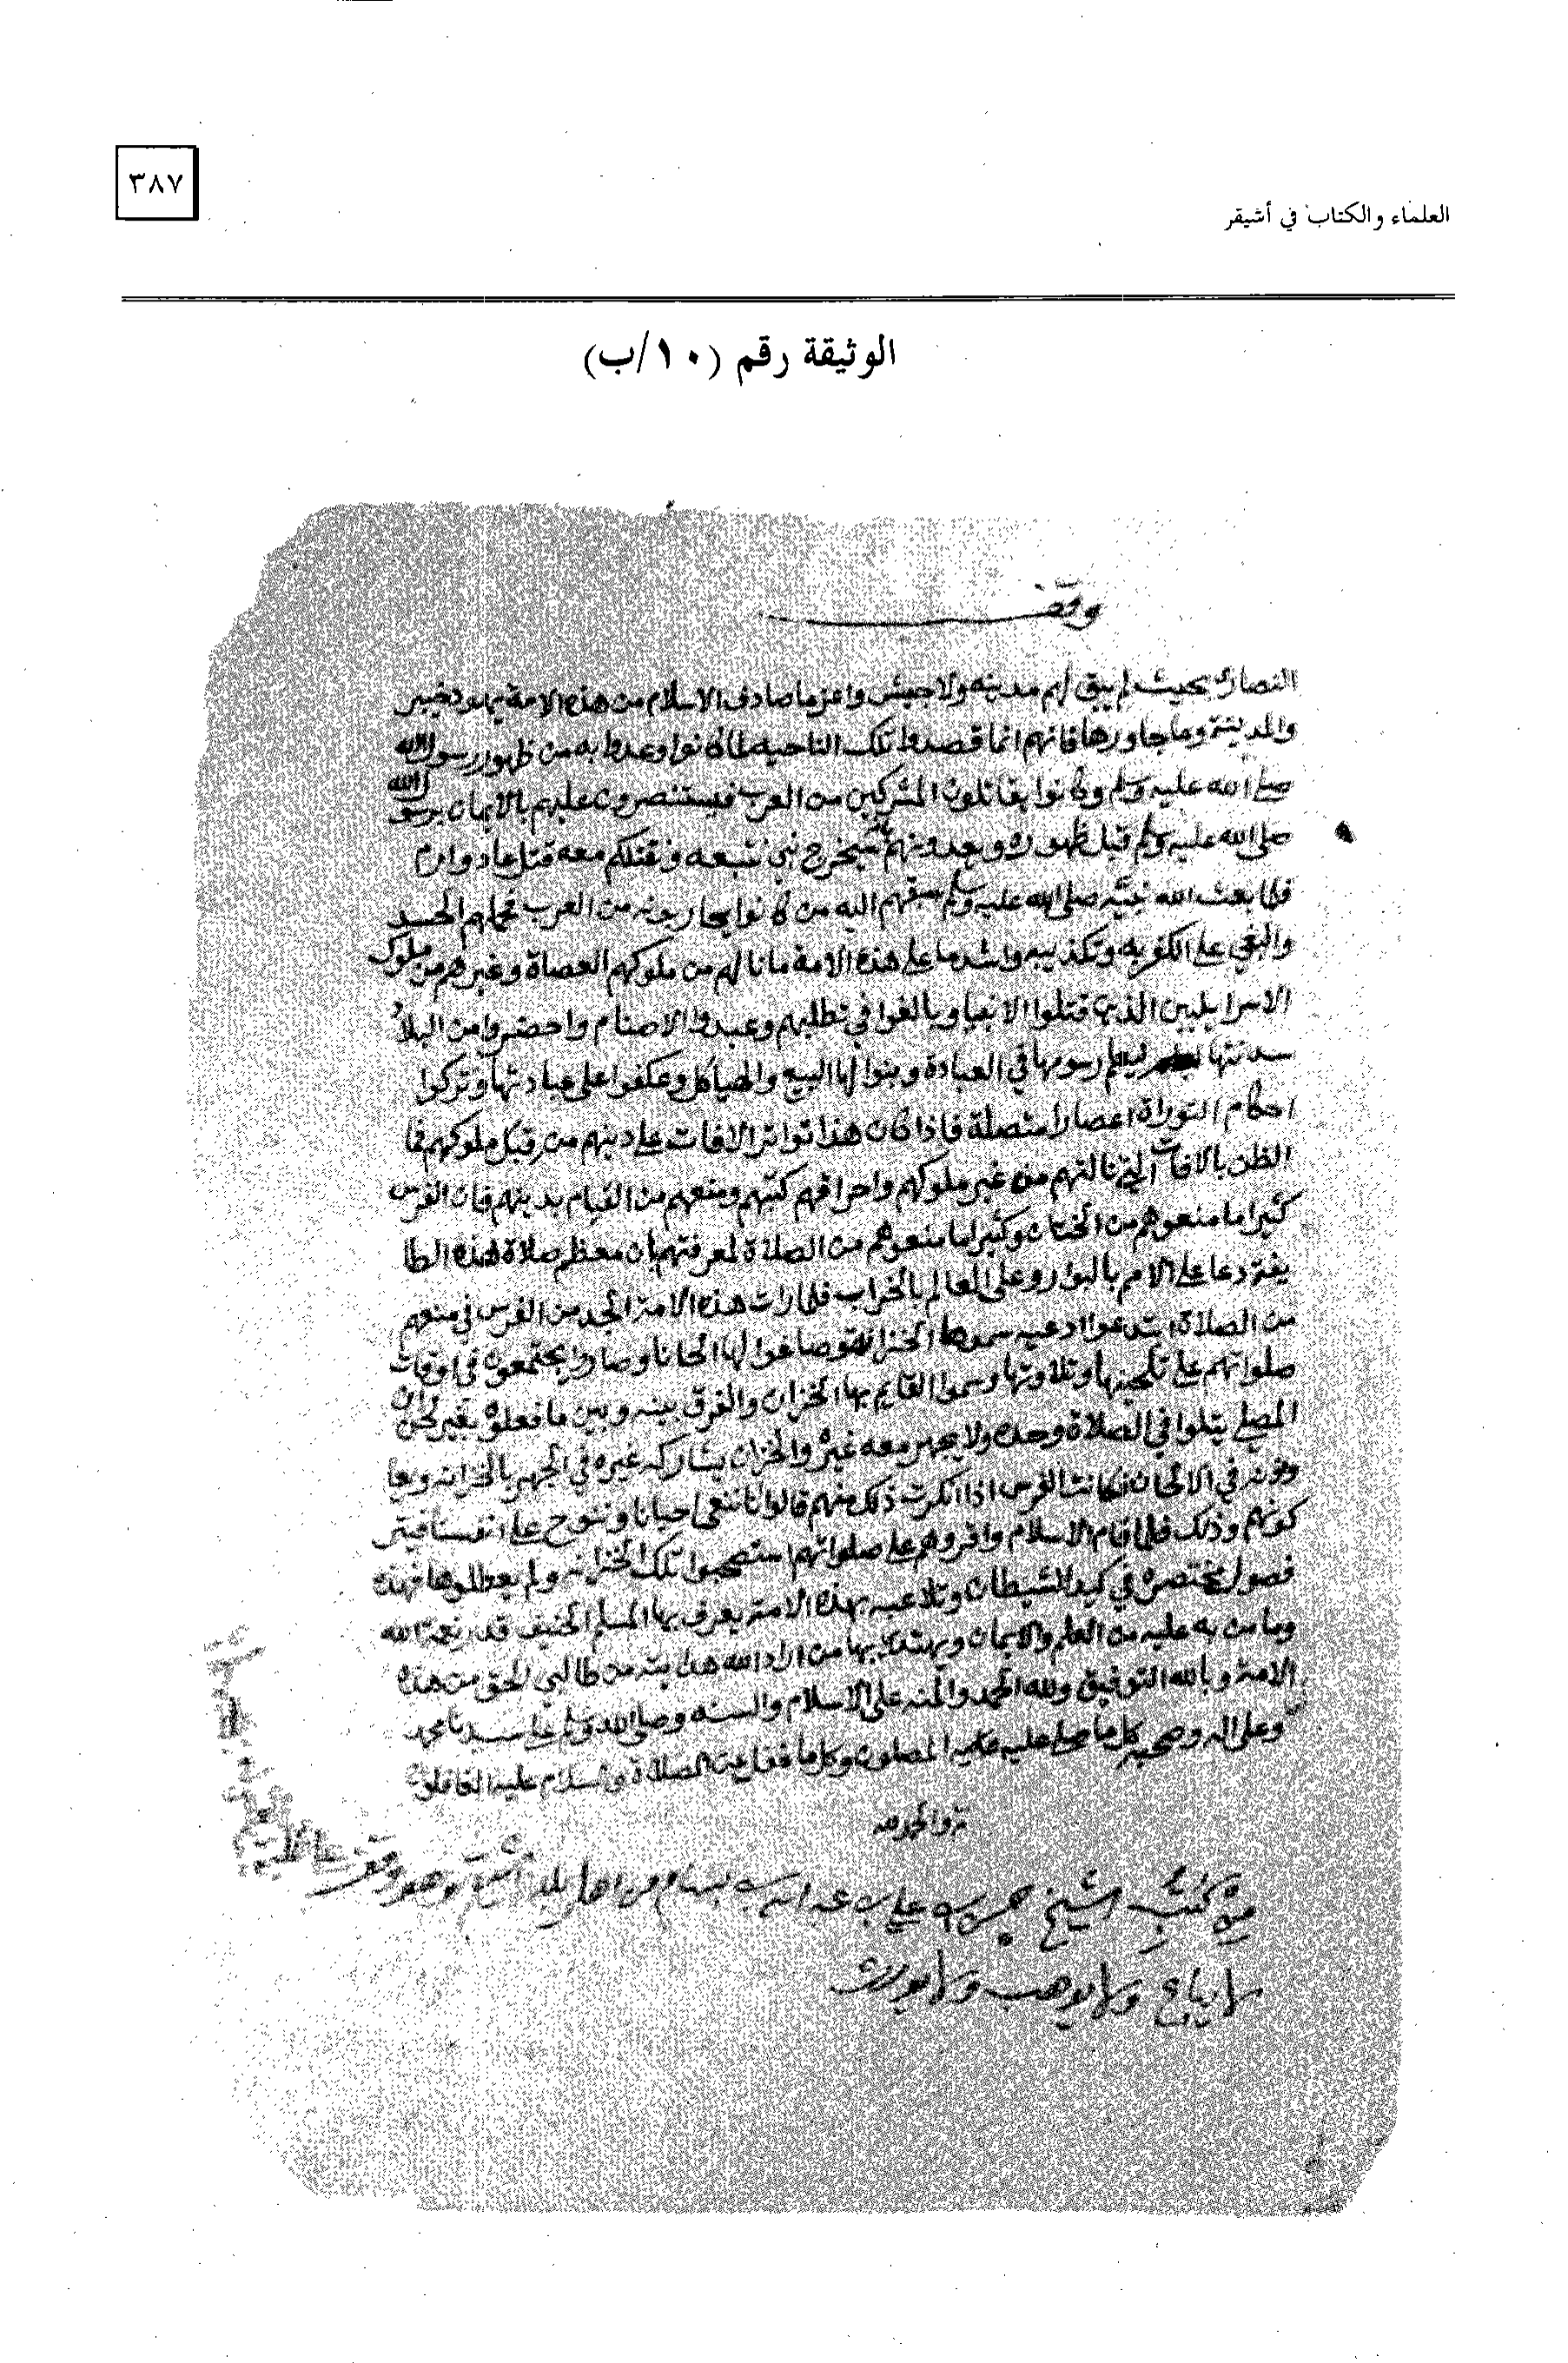 ٣٨٧
العلماء والكتاب في أشيقر
الوثيقة رقم (١٠/ب)
وقف
النصارى بحيث لم يبق لهم مدينه ولا جيش واعز ما صادف الاسلام من هذه الامة يهود خيبر
والمدينة وما جاورها فانهم انما قصدوا تلك الناحيه لما كانوا وعدوا به من ظهور رسول الله
صلى الله عليه وسلم وكانوا يقاتلون المشركين من العرب فيستنصرون عليهم بالايمان برسول الله
صلى الله عليه وسلم قبل ظهوره ويعدونهم بانه سيخرج نبي نتبعه ونقتلكم معه قتل عاد وارم
فلما بعث الله نبيه صلى الله عليه وسلم سبقهم اليه من كانوا يحاربونه من العرب فحملهم الحسد
والبغي على الكفر به وتكذيبه واشد ما على هذه الامة ما نالهم من ملوكهم العصاة وغيرهم من ملوك
الاسرايليين الذين قتلوا الانبيا وبالغوا في تطلبهم وعبدوا الاصنام واحضروا من البلاد
سدنتها لتعليم رسومها في العبادة وبنوا لها البيع والهياكل وعكفوا على عبادتها وتركوا
احكام التوراة اعصارا متصلة فاذا كان هذا تواتر الافات على دينهم من قبل ملوكهم فما
الظن بالافات التي نالتهم من غير ملوكهم واحراقهم كتبهم ومنعهم من القيام بدينهم فان الفرس
كثيرا ما منعوهم من الختان وكثيرا ما منعوهم من الصلاة لمعرفتهم بان معظم صلاة هذه الطا
يفة دعا على الامم بالبوار وعلى العالم بالخراب فلما رات هذه الامة الجد من الفرس في منعهم
من الصلاة ابتدعوا ادعيه سموها الخزانة وصاغوا لها الحانا وصاروا يجتمعون في اوقات
صلواتهم على تلحينها وتلاوتها وسموا القايم بها الخزان والفرق بينه وبين ما فعلوه بغير لحن وان
المصلي يتلوا في الصلاة وحده ولا يجهر معه غيره والخزان يشاركه غيره في الجهر بالخزانه ويعا
ونونه في الالحان فكانت الفرس اذا انكرت ذلك منهم قالوا انا ننعى احيانا وننوح على انفسنا فيتر
كونهم وذلك فلما قام الاسلام واقروهم على صلواتهم استصحبوا تلك الخزانه ولم يعطلوها فهذه
فصول مختصرة في كيد الشيطان وتلاعبه بهذه الامة يعرف بها المسلم الحنيف قدر نعمة الله
وما من به عليه من العلم والايمان ويهتدي بها من اراد الله هدايته من طالبي الحق من هذه
الامة وبالله التوفيق ولله الحمد والمنه على الاسلام والسنه وصلى الله وسلم على سيدنا محمد
وعلى اله وصحبه كل ما صلى عليه المصلون وكل ما غفل عن الصلاة والسلام عليه الغافلون
تم والحمد لله
من كتب الشيخ محمد بن علي بن عبد الله بن بسام من اهل بلد وهو وقف على
لا يباع ولا يوهب ولا يورث